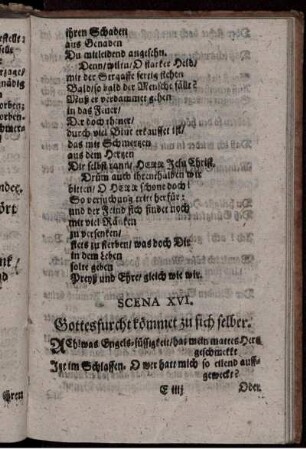 ihren Schaden
aus Genaden
Du mitleidend angesehn.
Denn/ wiltu/ O starker Held/
mit der Straaffe fertig stehen
Bald/ so bald der Mensche fällt?
Muß er verdammet gehen
in das Feuer/
Da doch theuer/
durch viel Blut erkauffet ist/
das mit Schmertzen
aus dem Hertzen
Dir selbst rann/ HErr Jesu Christ.
Drüm auch ihrenthalben wir
bitten/ O HErr schone doch!
So versuchung tritt herfür:
und der Feind sich findet noch
mit viel Räncken
zu versenken/
stets zu sterben/ was doch Dir
in dem Leben
solte geben
Preyß und Ehre/ gleich wie wir.
SCENA XVI.
Gottesfurcht kömmet zu sich selber.
ACh! was Engels-süssigkeit/ hat mein mattes Hertz
geschmeckt
Itzt im Schlaffen. O wer hatt mich so eilend auff-
geweckt?
E iiij
Oder